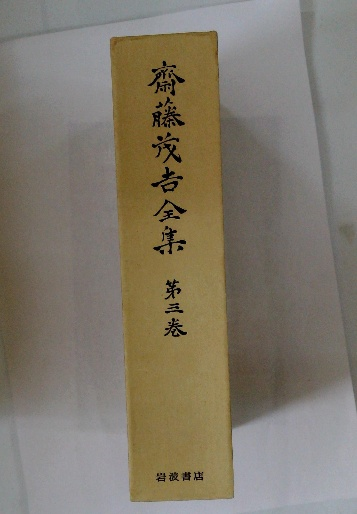 齋藤茂吉全集 第三巻
岩波書店